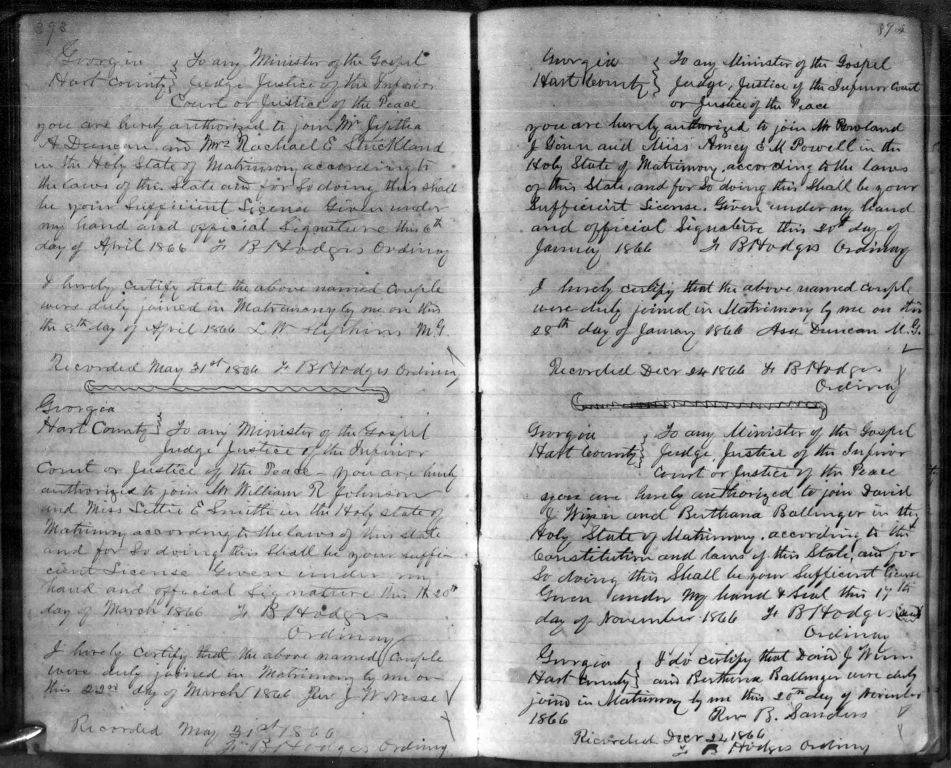 393
Georgia } To any Minister of the Gospel
Hart County } Judge Justice of the Inferior
Court or Justice of the Peace
you are hereby authorized to join Mr Jeptha
A Duncan and Mrs Rachael E Strickland
in the Holy State of Matrimony according to
the laws of this State and for So doing this shall
be your Sufficient License Given under
my hand and official Signature this 6th
day of April 1866 F B Hodges Ordinary
I hereby certify that the above named couple
were duly joined in Matrimony by me on this
the 8th day of April 1866 L W Stephens M G
Recorded May 31st 1866 F B Hodges Ordinary
Georgia
Hart County } To any Minister of the Gospel
Judge Justice of the Inferior
Court or Justice of the Peace you are hereby
authorized to join Mr William R Johnson
and Miss Lettie E Smith in the Holy state of
Matrimony according to the laws of this state
and for So doing this Shall be your suffi
cient License Given under my
hand and official Signature this 20th
day of March 1866 F B Hodges
Ordinary
I hereby certify that the above named Couple
were duly joined in Matrimony by me on
this 22nd day of March 1866 Rev J W
Recorded May 31st 1866
F B Hodges Ordinary
394
Georgia } To any Minister of the Gospel
Hart County } Judge, Justice of the Inferior Court
or Justice of the Peace
you are hereby authorized to join Mr Rowland
J and Miss E M Powell in the
Holy State of Matrimony, according to the laws
of this State, and for So doing this Shall be your
Sufficient License. Given under my hand
and official Signature this 20th day of
January 1866 F B Hodges Ordinary
I hereby certify that the above named couple
were duly joined in Matrimony by me on this
28th day of January 1866 Asa Duncan M. G.
Recorded Decr 24 1866 F B Hodges
Ordinary
Georgia } To any Minister of the Gospel
Hart County } Judge Justice of the Inferior
Court or Justice of the Peace
you are hereby authorized to join David
J Winn and Berthana Ballinger in the
Holy State of Matrimony, according to the
Constitution and laws of this State, and for
So doing this Shall be your Sufficient License
Given under My hand & Seal this 17th
day of November 1866 F B Hodges
Ordinary
Georgia } I do certify that David J Winn
Hart County } and Berthana Ballinger were duly
joined in Matrimony by me this 20th day of November
1866 Rev B. Sanders
Recorded Decr 24 1866
F B Hodges Ordinary